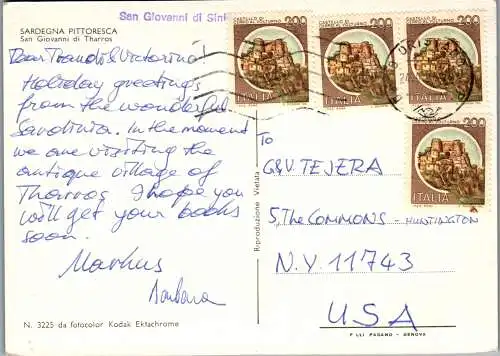 SARDEGNA PITTORESCA
San Giovanni di Tharros
San Giovanni di Sini
Dear Trando & Victorina!
Holiday greetings
from the wonderful
Sardinia. In the moment
we are visiting the
antique village of
Tharros. I hope you
will get your books
soon.
Markus
Barbara
N. 3225 da fotocolor Kodak Ektachrome
Riproduzione Vietata
200
CASTELLO DI CERRO AL VOLTURNO
ITALIA
200
CASTELLO DI CERRO AL VOLTURNO
ITALIA
200
CASTELLO DI CERRO AL VOLTURNO
ITALIA
200
CASTELLO DI CERRO AL VOLTURNO
ITALIA
To
G&V TEJERA
5, THE COMMONS - HUNTINGTON
N.Y. 11743
USA
F.LLI PAGANO - GENOVA